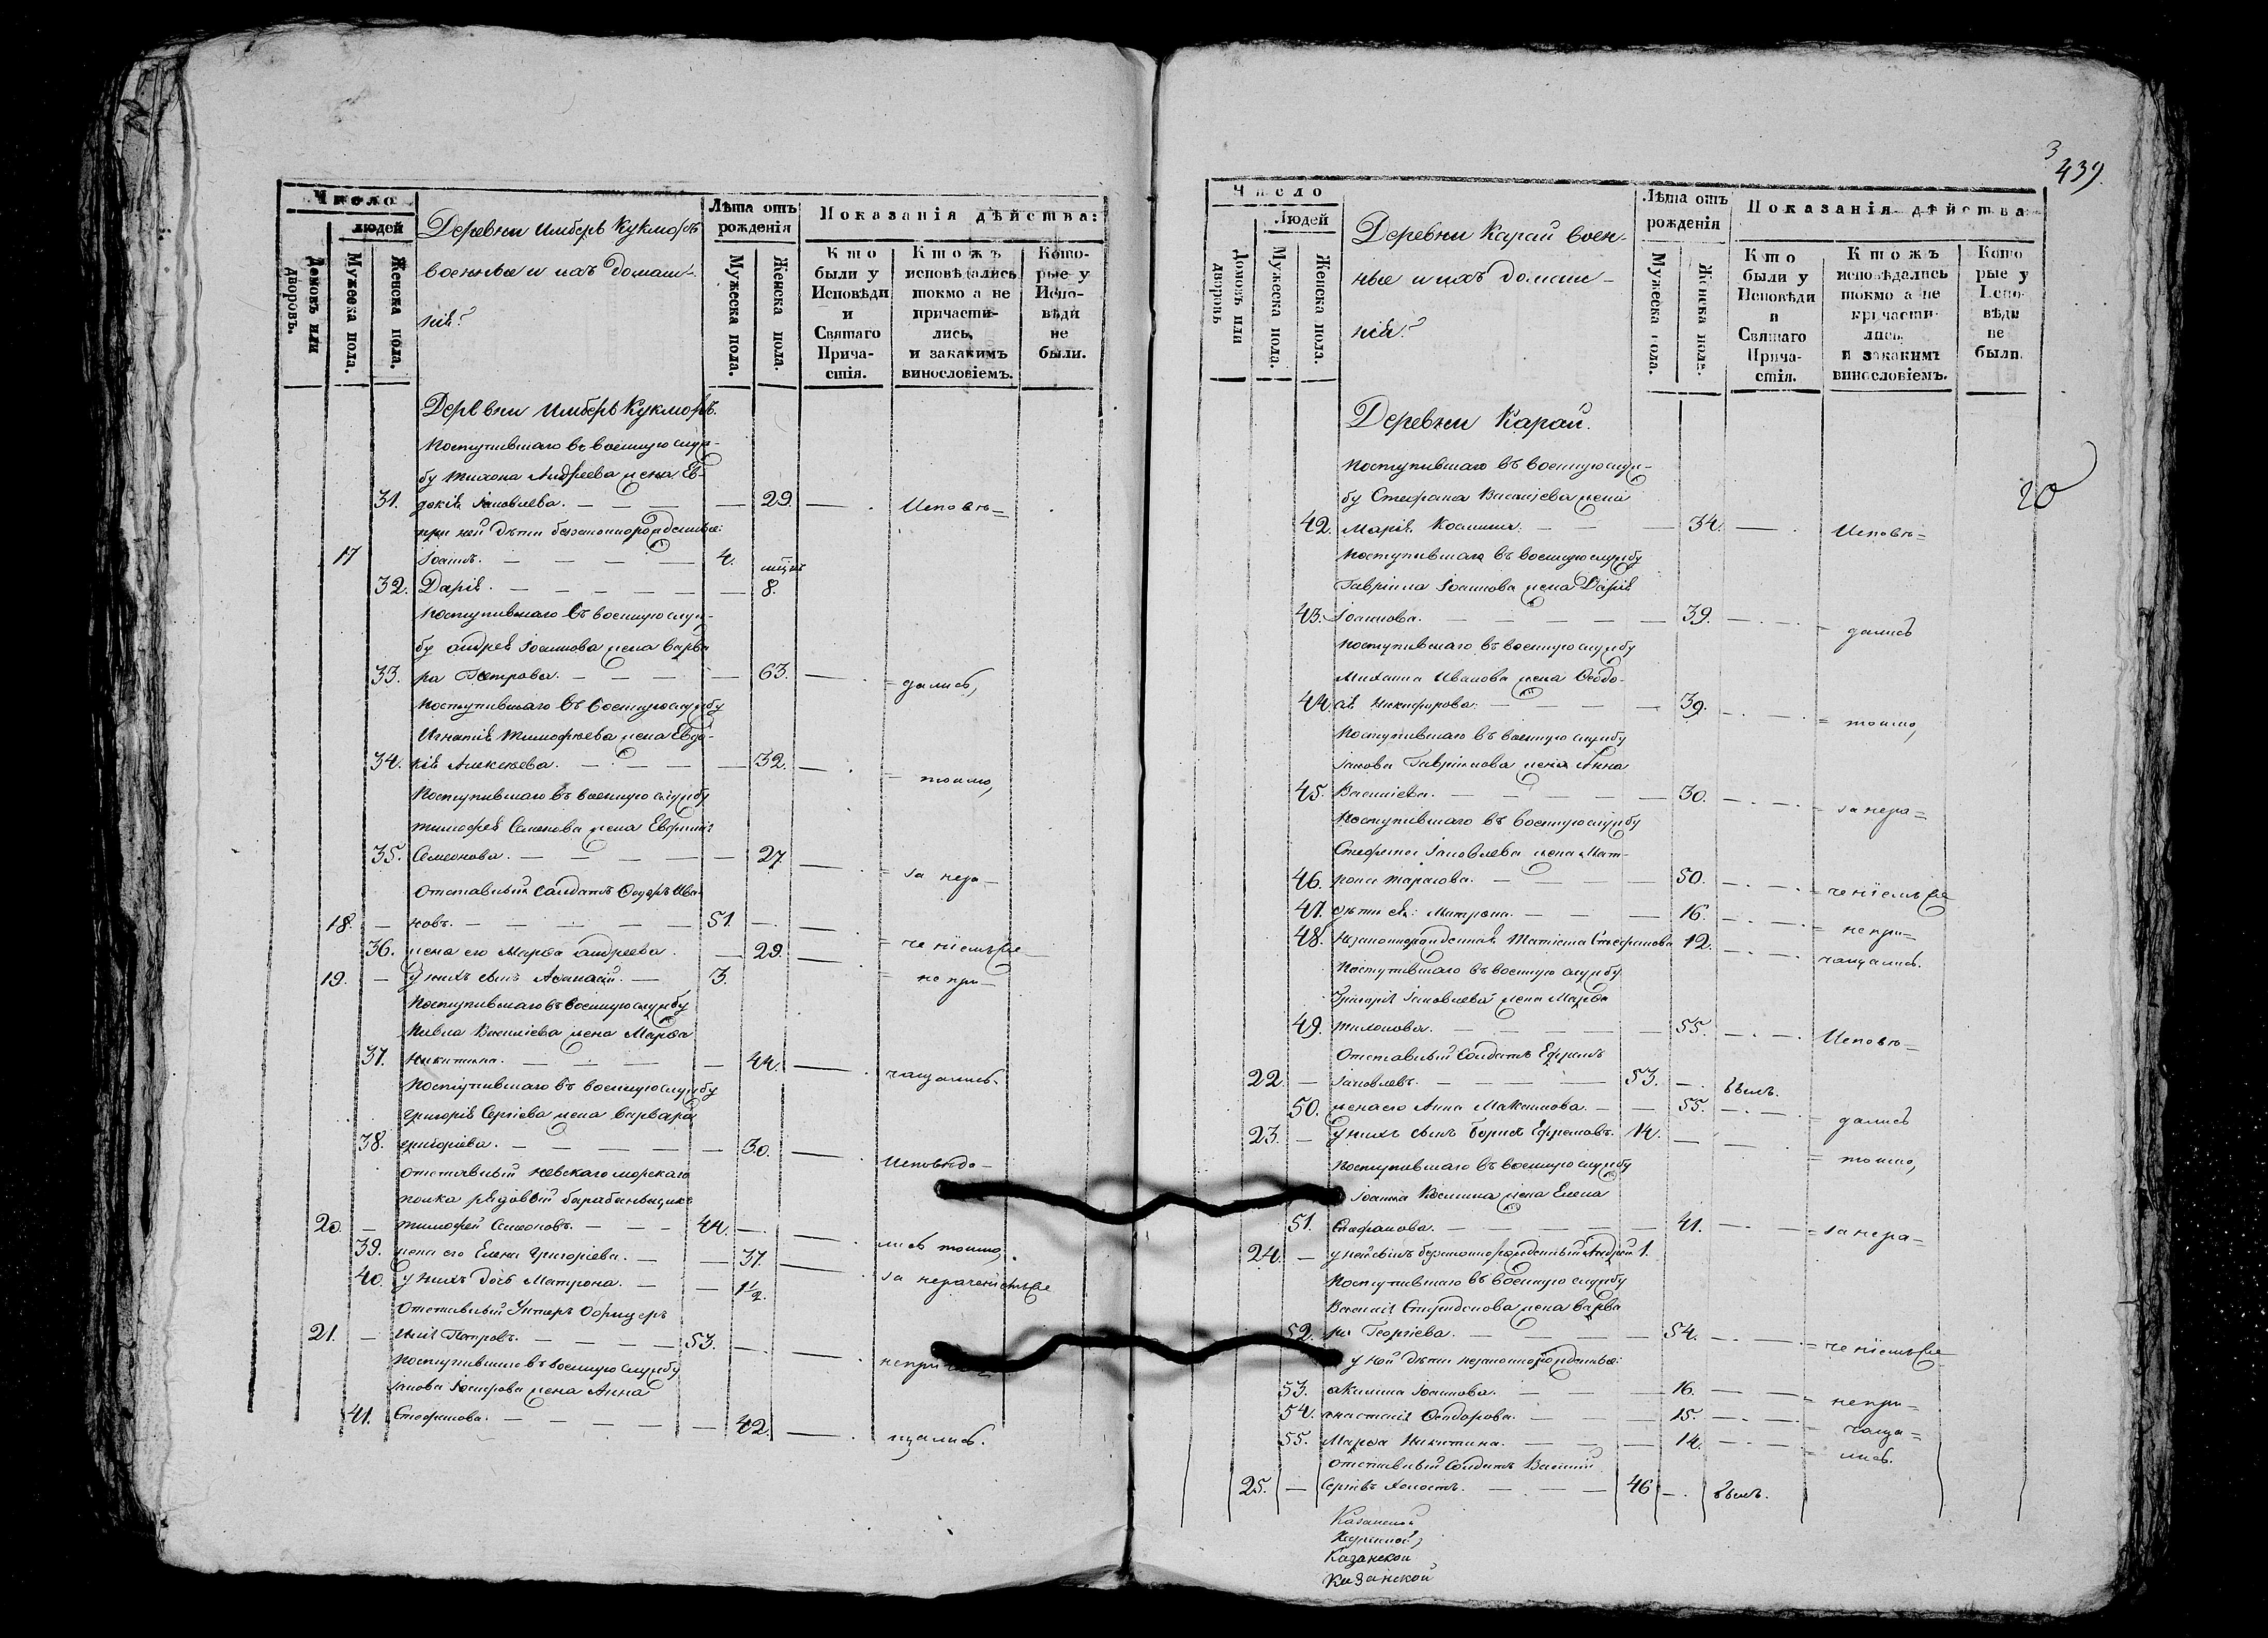 Число
людей
Домовъ или дворовъ.
Мужеска пола.
Женска пола.
Деревни Имберъ Кукморъ
военные и ихъ домаш-
ніе.
Лѣта отъ рожденія
Мужеска пола.
Женска пола.
Показанія дѣйства:
Кто были у Исповѣди и Святаго Прича-стія.
Ктожъ исповѣдались токмо а не причасти-лись, и закакимъ винословіемъ.
Кото-рые у Испо-вѣди не были.
Деревни Имберъ Кукморъ.
Поступившаго въ военную служ-
бу Тихона Андреева жена Ев-
31. докія Іаковлева. — 29. — Исповѣ=
при ней дѣти беззаконнорожденные:
17 Іоаннъ. — 4.
32. Дарія. — 8.
Поступившаго въ военную служ-
бу Андрея Іоаннова жена Варва
33. ра Петрова. — 63. — =дались,
Поступившаго въ военную службу
Игнатія Тимофѣева жена Евдо-
34. кія Алексѣева. — 32. — =токмо,
Поступившаго въ военную службу
Тимофея Семенова жена Евфимія
35. Семеонова. — 27. — =за нера-
Отставный солдатъ Ѳедоръ Ива
18. — новъ. — 51. —
36. жена его Марѳа Андреева. — 29. — =ченіемъ не
19. — у нихъ сынъ Аѳанасій. — 3. =непри-
Поступившаго въ военную службу
Павла Василіева жена Марѳа
37. Никитина. — 44. — чащались.
Поступившаго въ военную службу
Григорія Сергіева жена Варвара
38. Григоріева. — 30. — Исповѣда-
отставный Невскаго морскаго
полка рядовый барабаньщикъ
20. — Тимофей Семеоновъ. — 44. —
39. жена его Елена Григоріева. — 37. — лись токмо,
40. у нихъ дочь Матрона. — 1½. за нераченіемъ не
Отставный Унтеръ Офицеръ
21. — Илія Петровъ. — 53. —
Поступившаго въ военную службу
Іакова жена Анна
41. Стефанова. — 42. — щались.
3
439.
20
Число
Людей
Домовъ или дворовъ
Мужеска пола.
Женска пола.
Деревни Карай воен-
ные и ихъ домаш-
ніе.
Лѣта отъ рожденія
Мужеска пола.
Женска пола.
Показанія дѣйства
Кто были у Исповѣди и Святаго Прича-стія.
Ктожъ исповѣдались токмо а не причасти-лись, и закакимъ винословіемъ.
Кото рые у Испо-вѣди не были.
Деревни Карай.
Поступившаго въ военную служ-
бу Стефана Василіева жена
42. Марія Космина. — 34. — Исповѣ=
Поступившаго въ военную службу
Гавріила Іоаннова жена Дарія
43. Іоаннова. — 39. — =дались
Поступившаго въ военную службу
Михаила Иванова жена Ѳеодо-
44. сія Никифорова. — 39. — =токмо,
Поступившаго въ военную службу
Іакова Гавріилова жена Анна
45. Василіева. — 30. — =за нера=
Поступившаго въ военную службу
Стефана Іаковлева жена Мат-
46. рона Тарасова. — 50. — =ченіемъ не
47. дѣти ея: Матрона. — 16. — =непри=
48. Незаконнорожденная Татіана Стефанова 12. — чащались.
Поступившаго въ военную службу
Григорія Іаковлева жена Марѳа
49. Тихонова. — 55. — Исповѣ=
Отставный солдатъ Ефремъ
22. — Іаковлевъ. — 53. — былъ.
50. жена его Анна Максимова. — 55. — =дались
23. — у нихъ сынъ Борисъ Ефремовъ. 14. — =токмо,
Поступившаго въ военную службу
Іоанна Космина жена Елена
51. Стефанова. — 41. — =за нера=
24. — у ней сынъ беззаконнорожденный Андрей 1.
Поступившаго въ военную службу
Василія жена Варва
52. ра Георгіева. — 54. — =ченіемъ не
у ней дѣти незаконнорожденные:
53. Акилина Іоаннова. — 16. — =непри=
54. Анастасія Ѳеодорова. — 15. — чаща=
55. Марѳа Никитина. — 14. — =лись.
отставный солдатъ Василій
25. — Сергѣевъ холостъ. — 46 — былъ.
Казанской
Казанской
Казанской